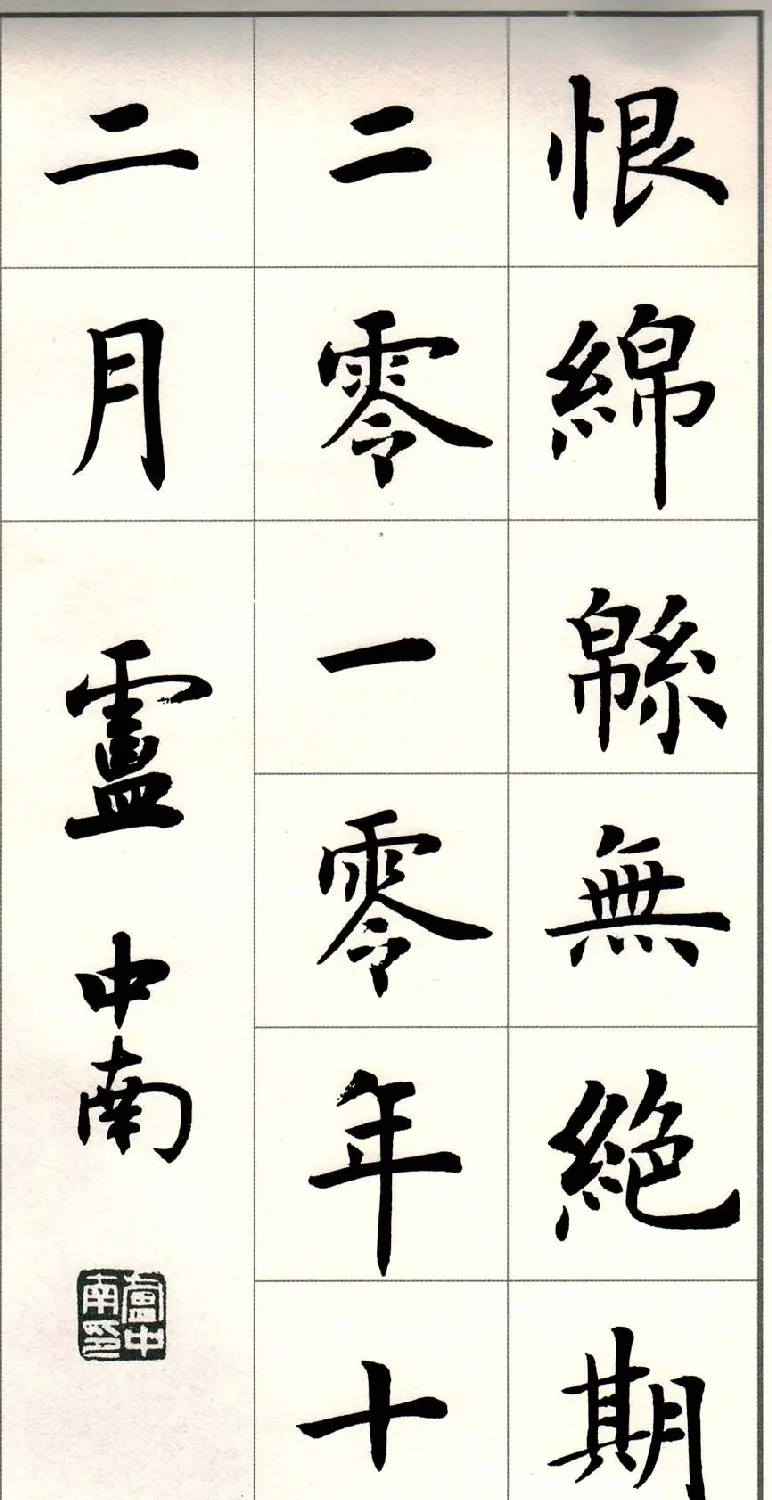 恨綿緜無絕期
二零一零年十
二月 盧中南
盧中南印